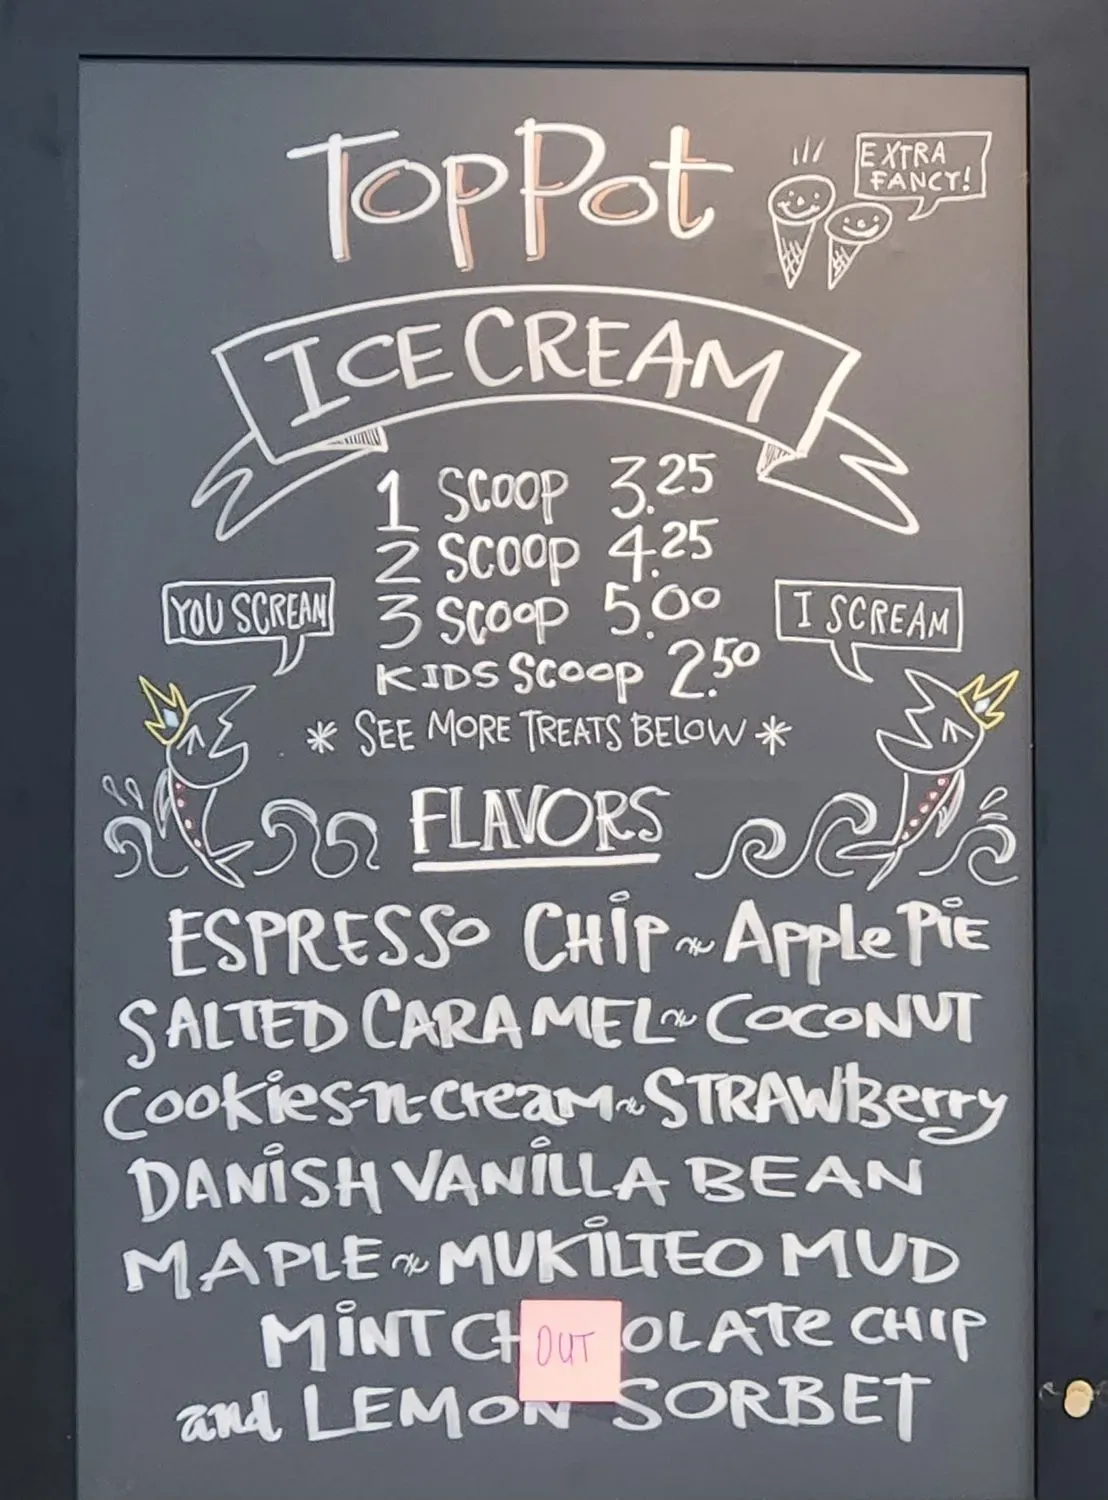 TopPot
EXTRA
FANCY!
ICE CREAM
1 SCOOP 3.25
2 SCOOP 4.25
3 SCOOP 5.00
KIDS SCOOP 2.50
YOU SCREAM
I SCREAM
* SEE MORE TREATS BELOW *
FLAVORS
ESPRESSO CHiP ~ Apple PiE
SALTED CARAMEL ~ COCONUT
Cookies-n-cream ~ STRAWBerry
DANiSH VANiLLA BEAN
MAPLE ~ MUKiLTEO MUD
MiNT CH OUT OLATe CHIP
and LEMON SORBET